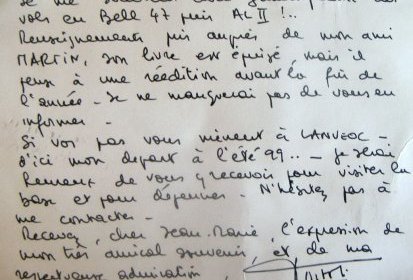 vols en Bell 47 puis AL II !..
Renseignements pris auprès de mon ami
MARTIN, son livre est épuisé, mais il
pense à une réédition avant la fin de
l'année - Je ne manquerai pas de vous en
informer -
Si vos pas vous mènent à LANVEOC -
d'ici mon départ à l'été 99.. - Je serais
heureux de vous y recevoir pour visiter la
base et pour déjeuner - N'hésitez pas à
me contacter -
Recevez, cher Jean-Marie, l'expression de
mon très amical souvenir, et de ma
respectueuse admiration